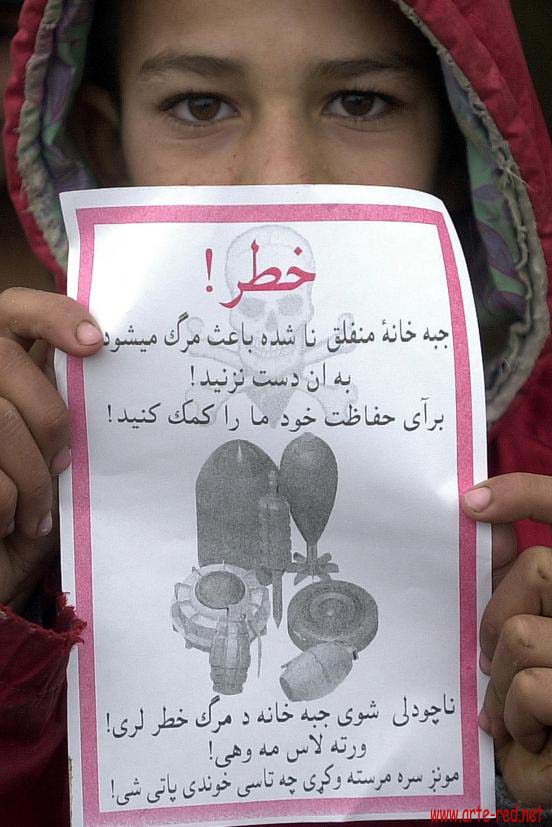 خطر!
جبه خانهٔ منفلق نا شده باعث مرگ میشود
به ان دست نزنید!
برآی حفاظت خود ما را کمک کنید!
ناچودلی شوی جبه خانه د مرگ خطر لری!
ورته لاس مه وهی!
مونږ سره مرسته وکړی چه تاسی خوندی پاتی شی!
www.arte-red.net